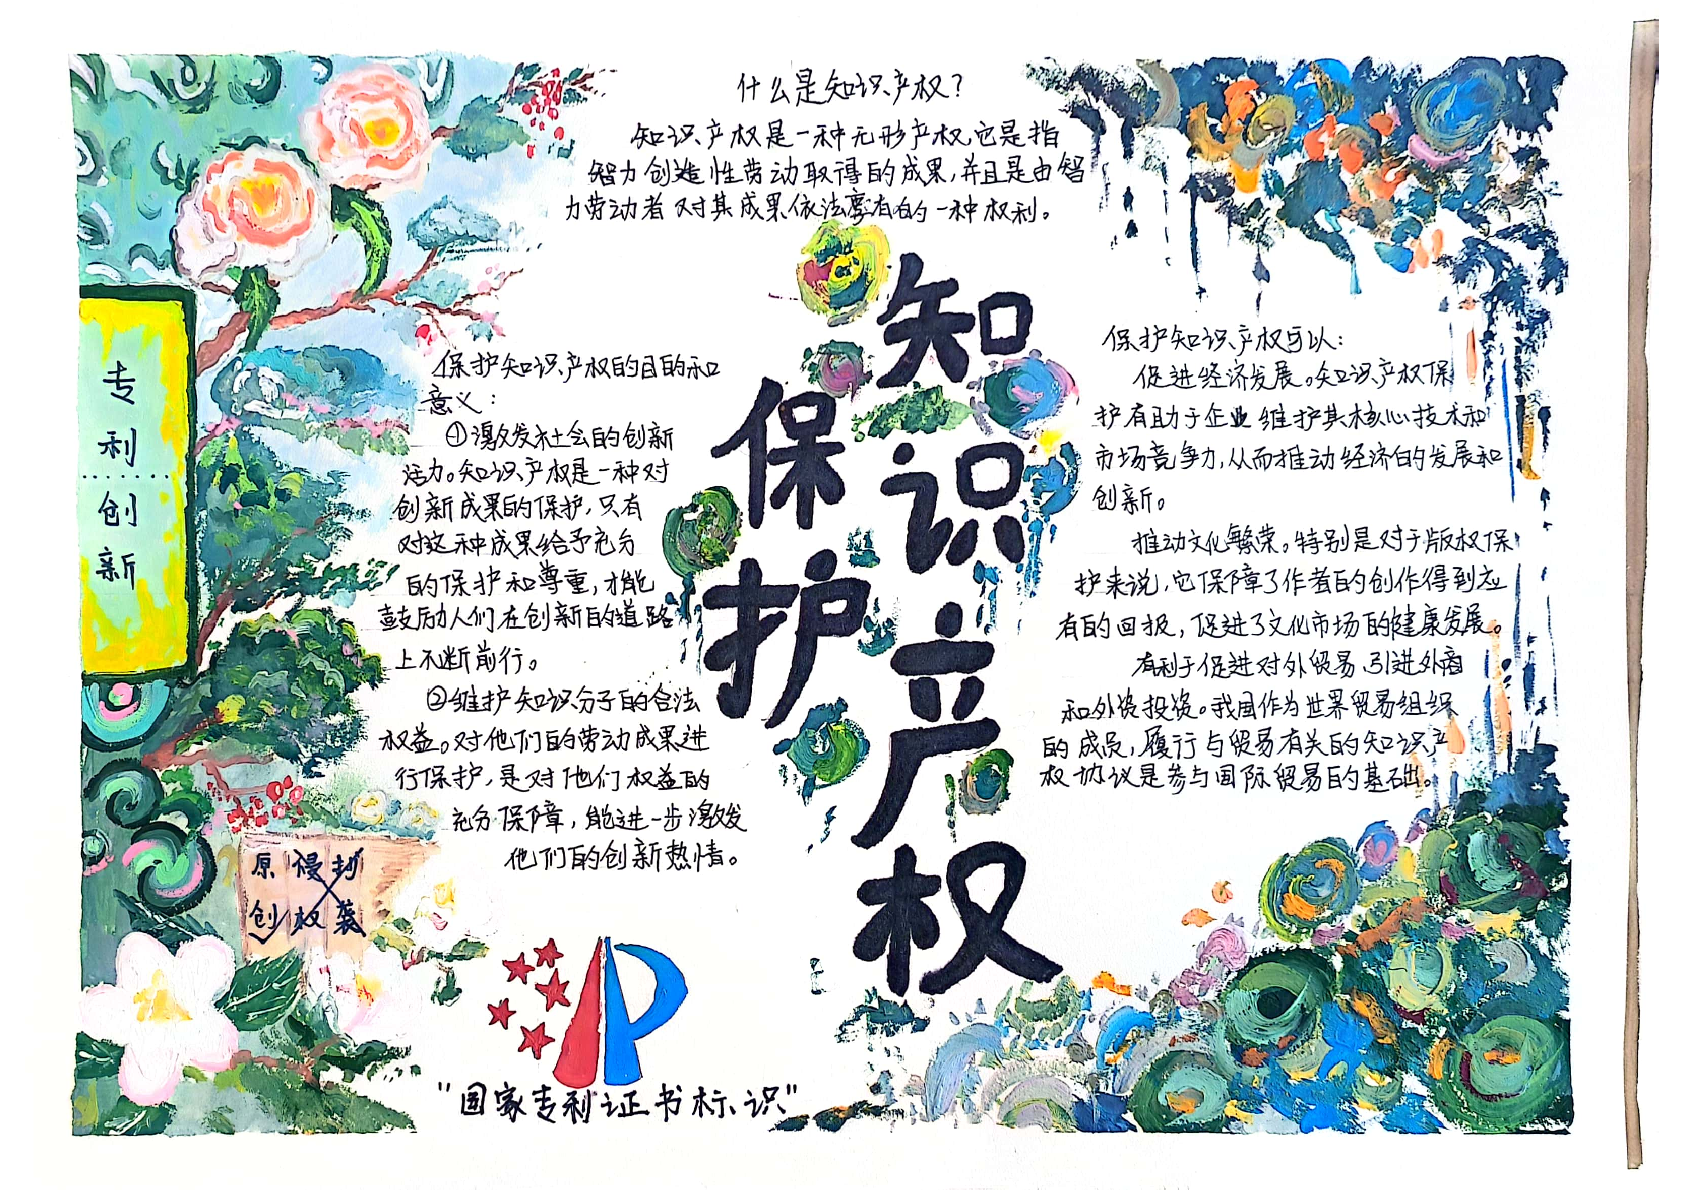 什么是知识产权？
知识产权是一种无形产权，它是指
智力创造性劳动取得的成果，并且是由智
力劳动者对其成果依法享有的一种权利。
保护
知识产权
专利
创新
保护知识产权的目的和
意义：
①激发社会的创新
活力。知识产权是一种对
创新成果的保护，只有
对这种成果给予充分
的保护和尊重，才能
鼓励人们在创新的道路
上不断前行。
②维护知识分子的合法
权益。对他们的劳动成果进
行保护，是对他们权益的
充分保障，能进一步激发
他们的创新热情。
保护知识产权可以：
促进经济发展。知识产权保
护有助于企业维护其核心技术和
市场竞争力，从而推动经济的发展和
创新。
推动文化繁荣。特别是对于版权保
护来说，它保障了作者的创作得到应
有的回报，促进了文化市场的健康发展。
有利于促进对外贸易、引进外商
和外资投资。我国作为世界贸易组织
的成员，履行与贸易有关的知识产
权协议是参与国际贸易的基础。
原创
侵权
抄袭
"国家专利证书标识"